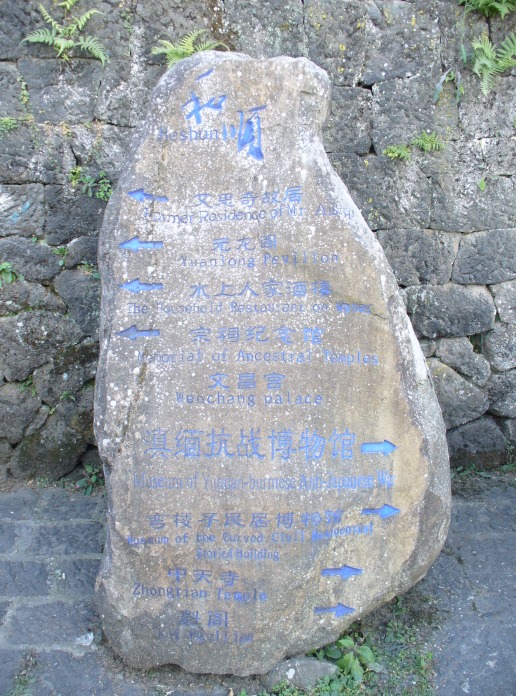 和顺
Heshun
艾思奇故居
Former Residence of Mr. Aisiqi
元龙阁
Yuanlong Pavilion
水上人家酒楼
The Household Restaurant on Water
宗祠纪念馆
Memorial of Ancestral Temples
文昌宫
Wenchang palace
滇缅抗战博物馆
Museum of Yunnan-burmese Anti-Japanese War
弯楼子民居博物馆
Museum of the Curved Civil Residential
Storied Building
中天寺
Zhongtian Temple
魁阁